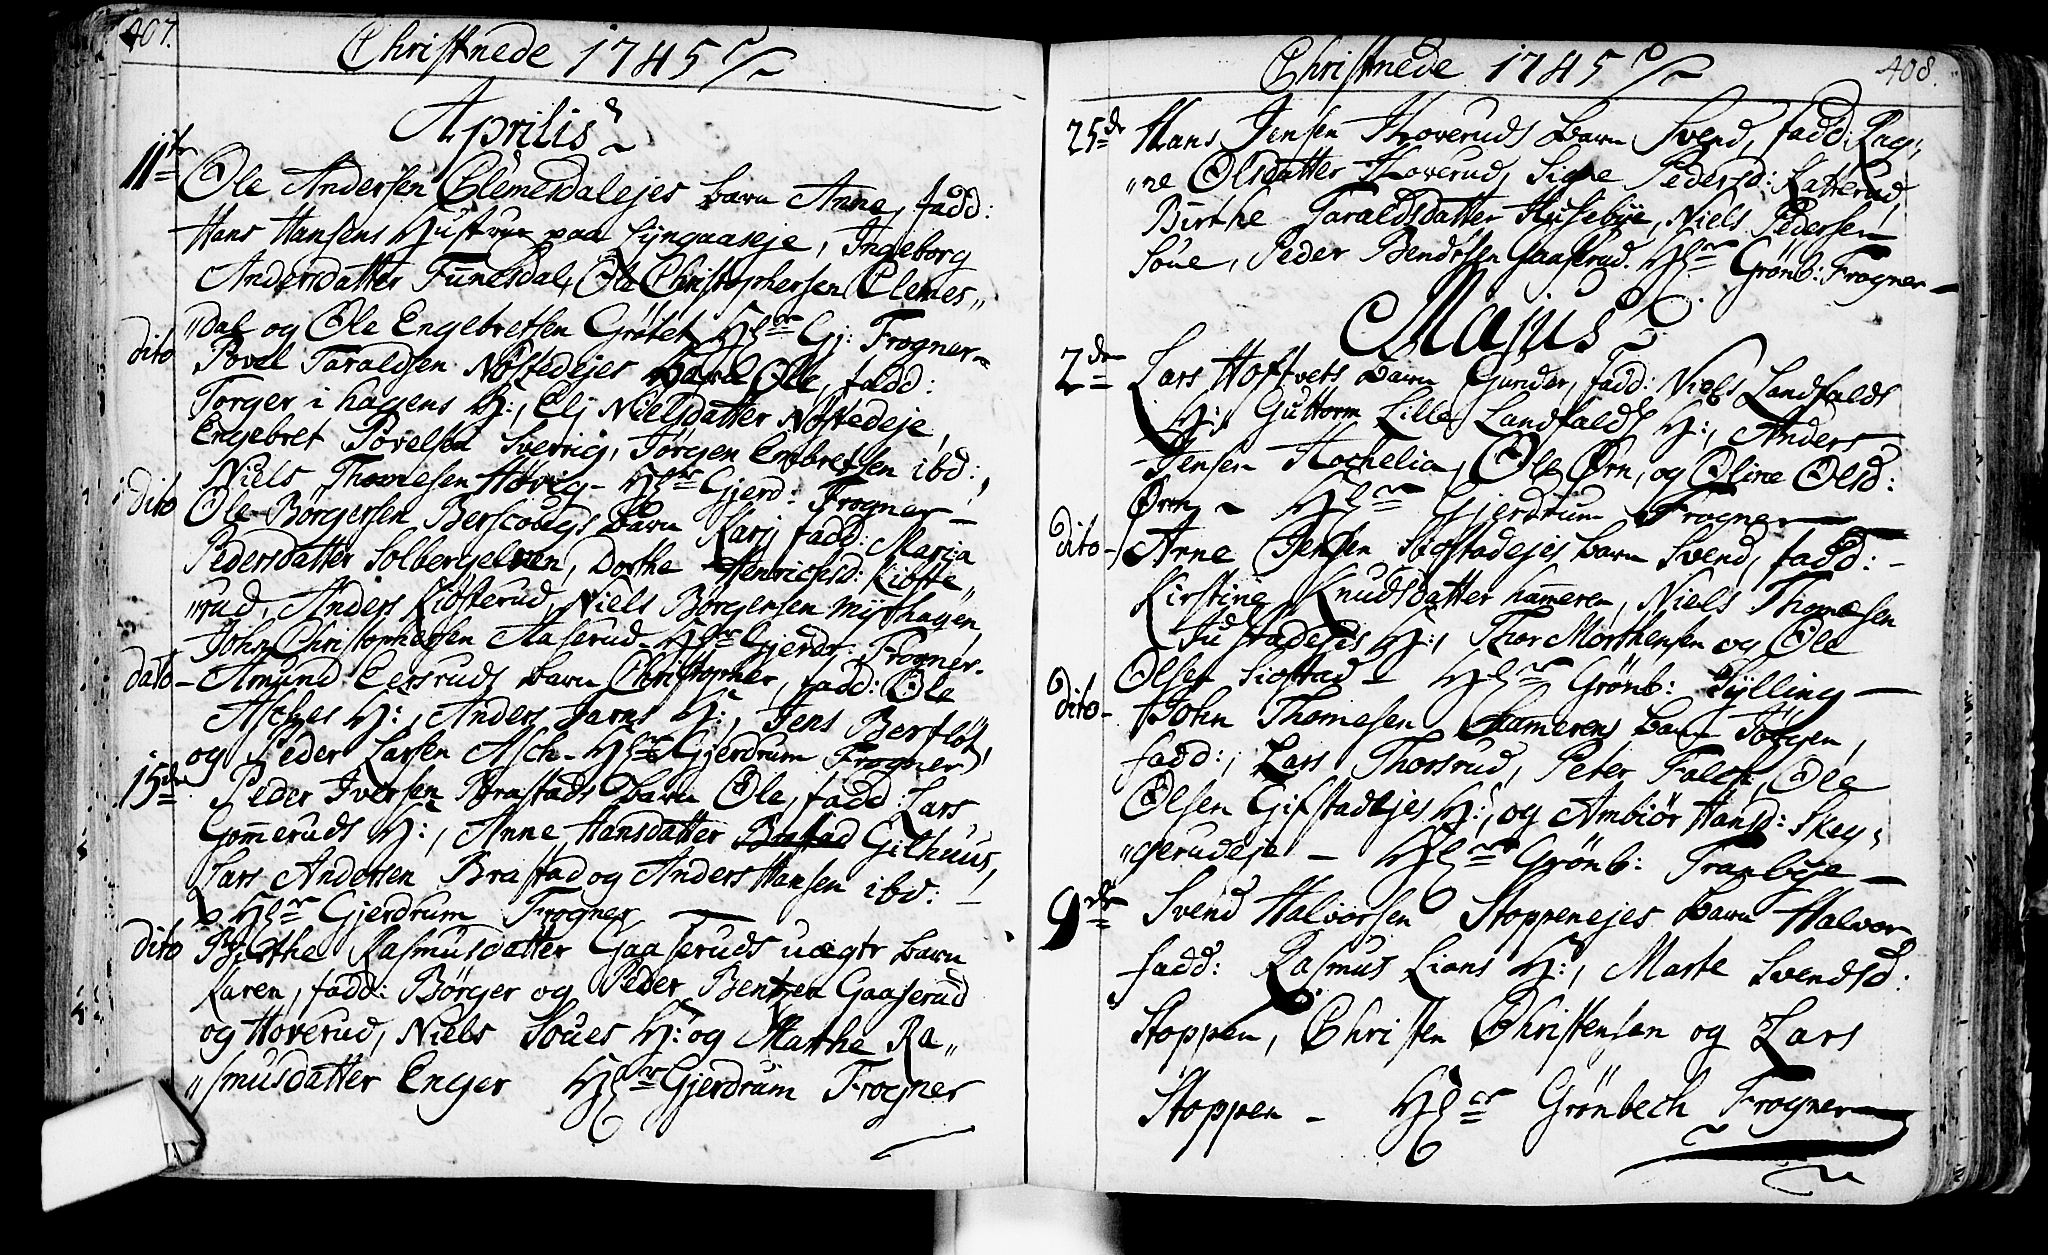 407.
Christnede 1745
Aprilis
11te Ole Andersen Clemesdalejes barn Anne, fadd:
Hans Hansens Hustrue paa Lyngaaseje, Ingeborg
Andersdatter Funesdal, Ole Christophersen Clemes„
„dal og Ole Engebretsen Grötet Hr Gj: Frogner
dito Povel Taraldsen Nöstedejes barn Ole, fadd:
Torger i hagens H:, Elj Nielsdatter Nöstedeje,
Engebret Povelsen Sverrig, Jörgen Embretsen ibd:,
Niels Thomesen Hövig Hr Gjerd: Frogner
dito Ole Börgersen Berscougs barn Karj, fadd: Maria
Pedersdatter Solbergelven, Dorthe Henrichsd: Kiöste„
„rud, Anders Kiösterud, Niels Börgersen Myrhagen,
John Christophersen Aaserud Hr Gjerdr: Frogner.
dato Amund Eersruds barn Christopher, fadd: Ole
Asches H:, Anders Jarns H:, Jens Berflöt,
og Peder Larsen Asch Hr Gjerdrum Frogner
15de Peder Iversen Brastads barn Ole, fadd: Lars
Gomeruds H:, Anne Hansdatter Gilhuus,
Lars Andersen Brastad og Anders Hansen ibd:
Hr Gjerdrum Frogner
dito Byrthe Rasmusdatter Gaaseruds uægte barn
Karen, fadd: Börger og Peder Bentzen Gaaserud
og Hoverud, Niels Soues H: og Marthe Ra„
„smusdatter Enger Hr Gjerdrum Frogner
408.
Christnede 1745
25de Hans Jensen Hoveruds barn Svend, fadd: Rag„
„ne Olsdatter Hoverud, Signe Pedersd: Ratterud,
Birthe Taraldsdatter Husebye, Niels Pedersen
Soue, Peder Bendtsen Gaaserud. Hr Grönb: Frogner
Majus
2de Lars Hoftvets barn Gunder, fadd: Niels Landfalds
H:, Guttorm Lille Landfalds H:, Anders
Jensen Hochelia, Ole Örn, og Oline Olsd:
Örn Hr Gjerdrum Frogner
dito Arne Jensen barn Svend, fadd:
Kirstine Knudsdatter hameren, Niels Thomesen
Justadejes H:, Thor Morthensen og Ole
Olsen Siostad Hr Grönb: Sylling
dito John Thomesen hamerens barn Jörgen,
fadd:, Lars Thorsrud, Peter Falch, Ole
Olsen Gifstadejes H:, og Ambiör Hansd: Skey„
„gerudeje Hr Grönb: Tranbye
9de Svend Halvorsen Stoppenejes barn Halvor
fadd: Rasmus Lians H:, Marte Svendsd:
Stoppen, Christen Christensen og Lars
Stoppen Hr Grönbech Frogner